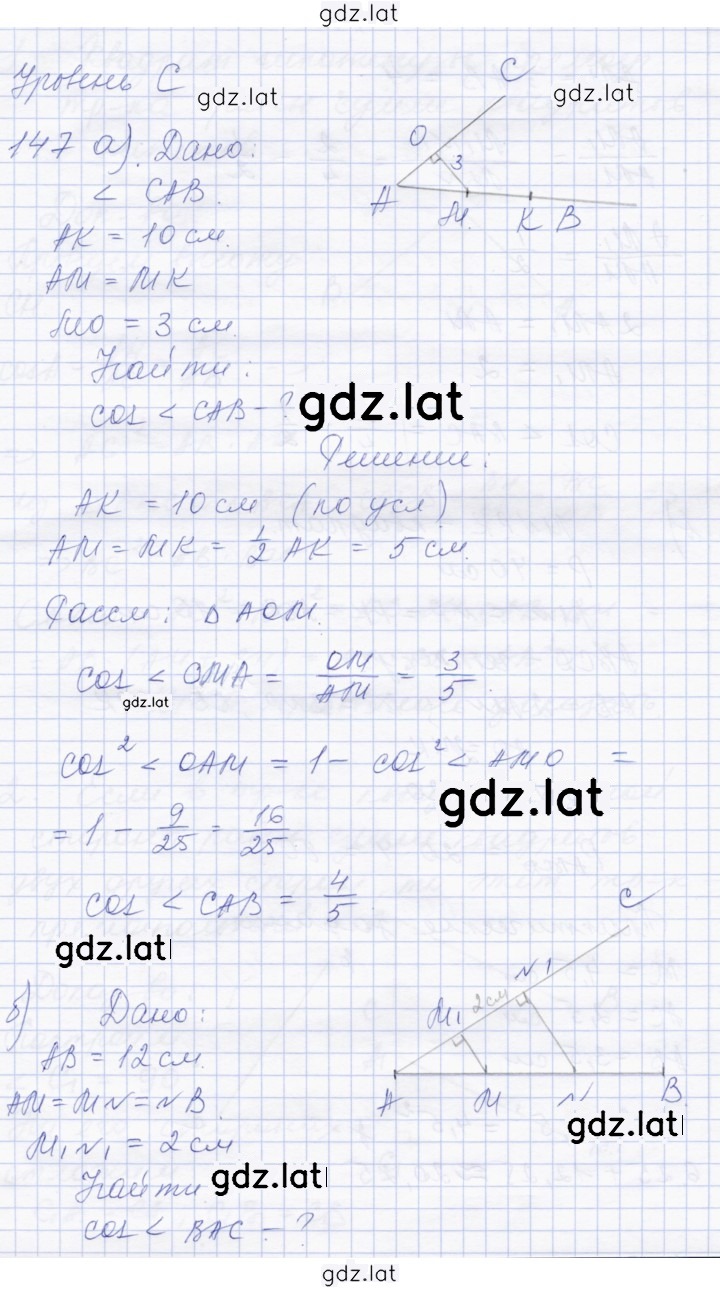 gdz.lat
Уровень С
gdz.lat
gdz.lat
147 а). Дано:
< CAB.
AK = 10 см.
AM = MK
MO = 3 см.
Найти:
cos < CAB - ?
gdz.lat
C
O
3
A
M.
K
B
Решение:
AK = 10 см (по усл)
AM = MK = 1/2 AK = 5 см.
Рассм: Δ AOM.
cos < OMA = OM/AM = 3/5.
gdz.lat
cos² < OAM = 1 - cos² < AMO =
gdz.lat
= 1 - 9/25 = 16/25.
cos < CAB = 4/5.
gdz.lat
б) Дано:
AB = 12 см.
AM = MN = NB.
M₁N₁ = 2 см
Найти
gdz.lat
cos < BAC - ?
C
N1
2см
M₁
A
M
N
B.
gdz.lat
gdz.lat